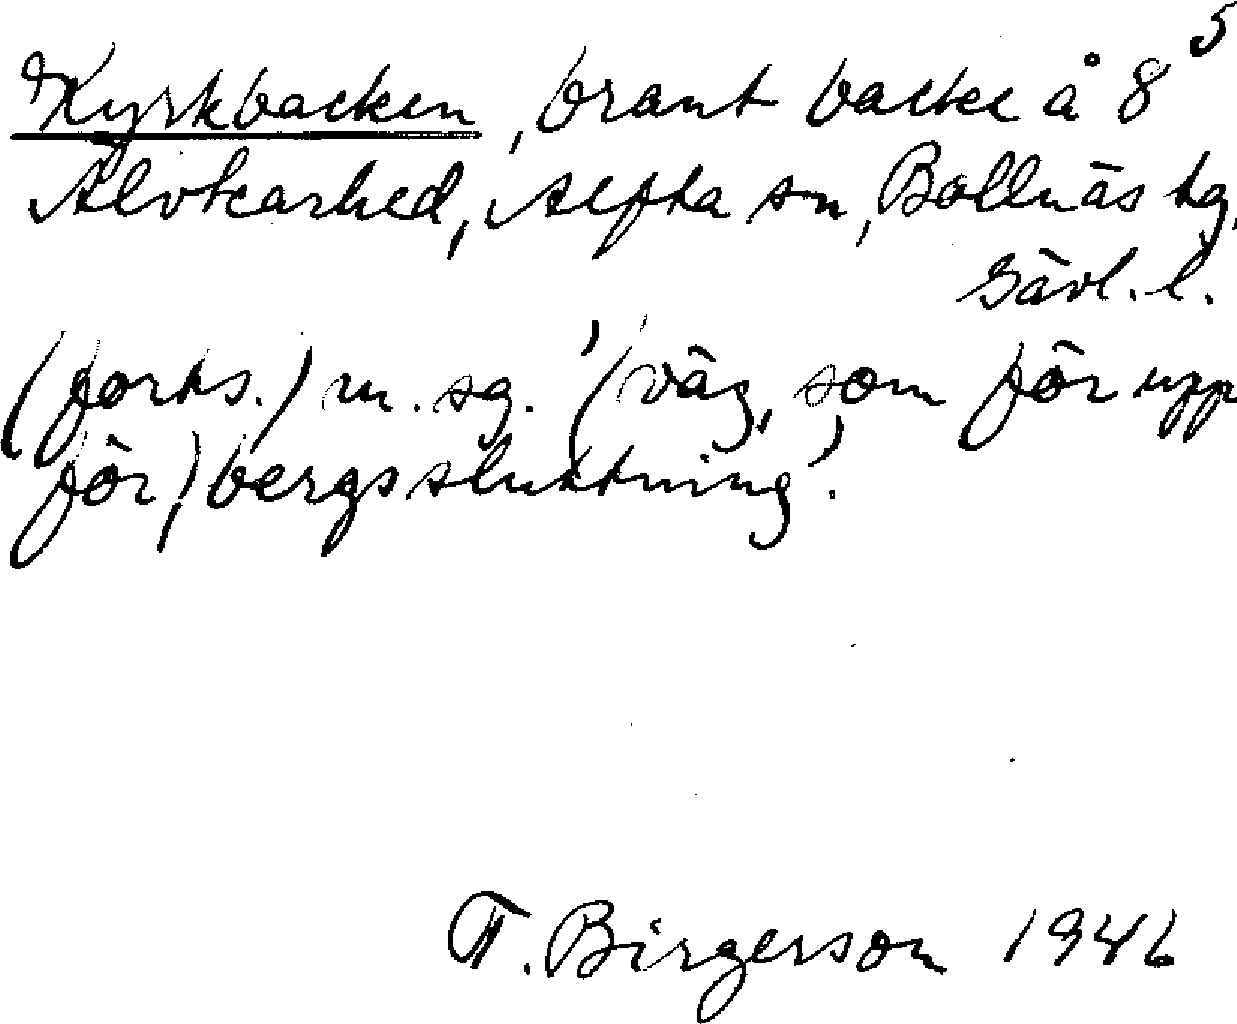 Kyrkbacken, brant backe å 8⁵
Alvkarhed, Alfta sn, Bollnäs tg,
Gävl. l.
(forts.) m. sg. '(väg, som för upp
för,) bergssluttning'.
T. Birgerson 1946